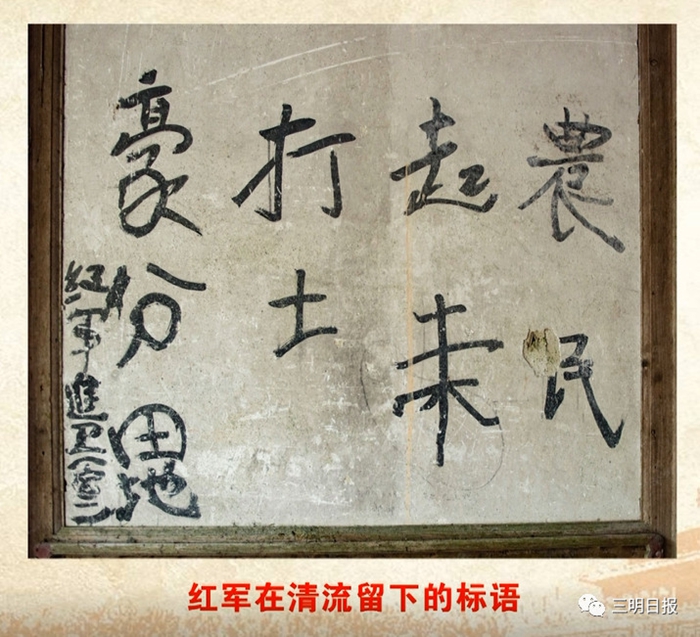 農民
起来
打土
豪分田地
红军進
红军在清流留下的标语
三明日报